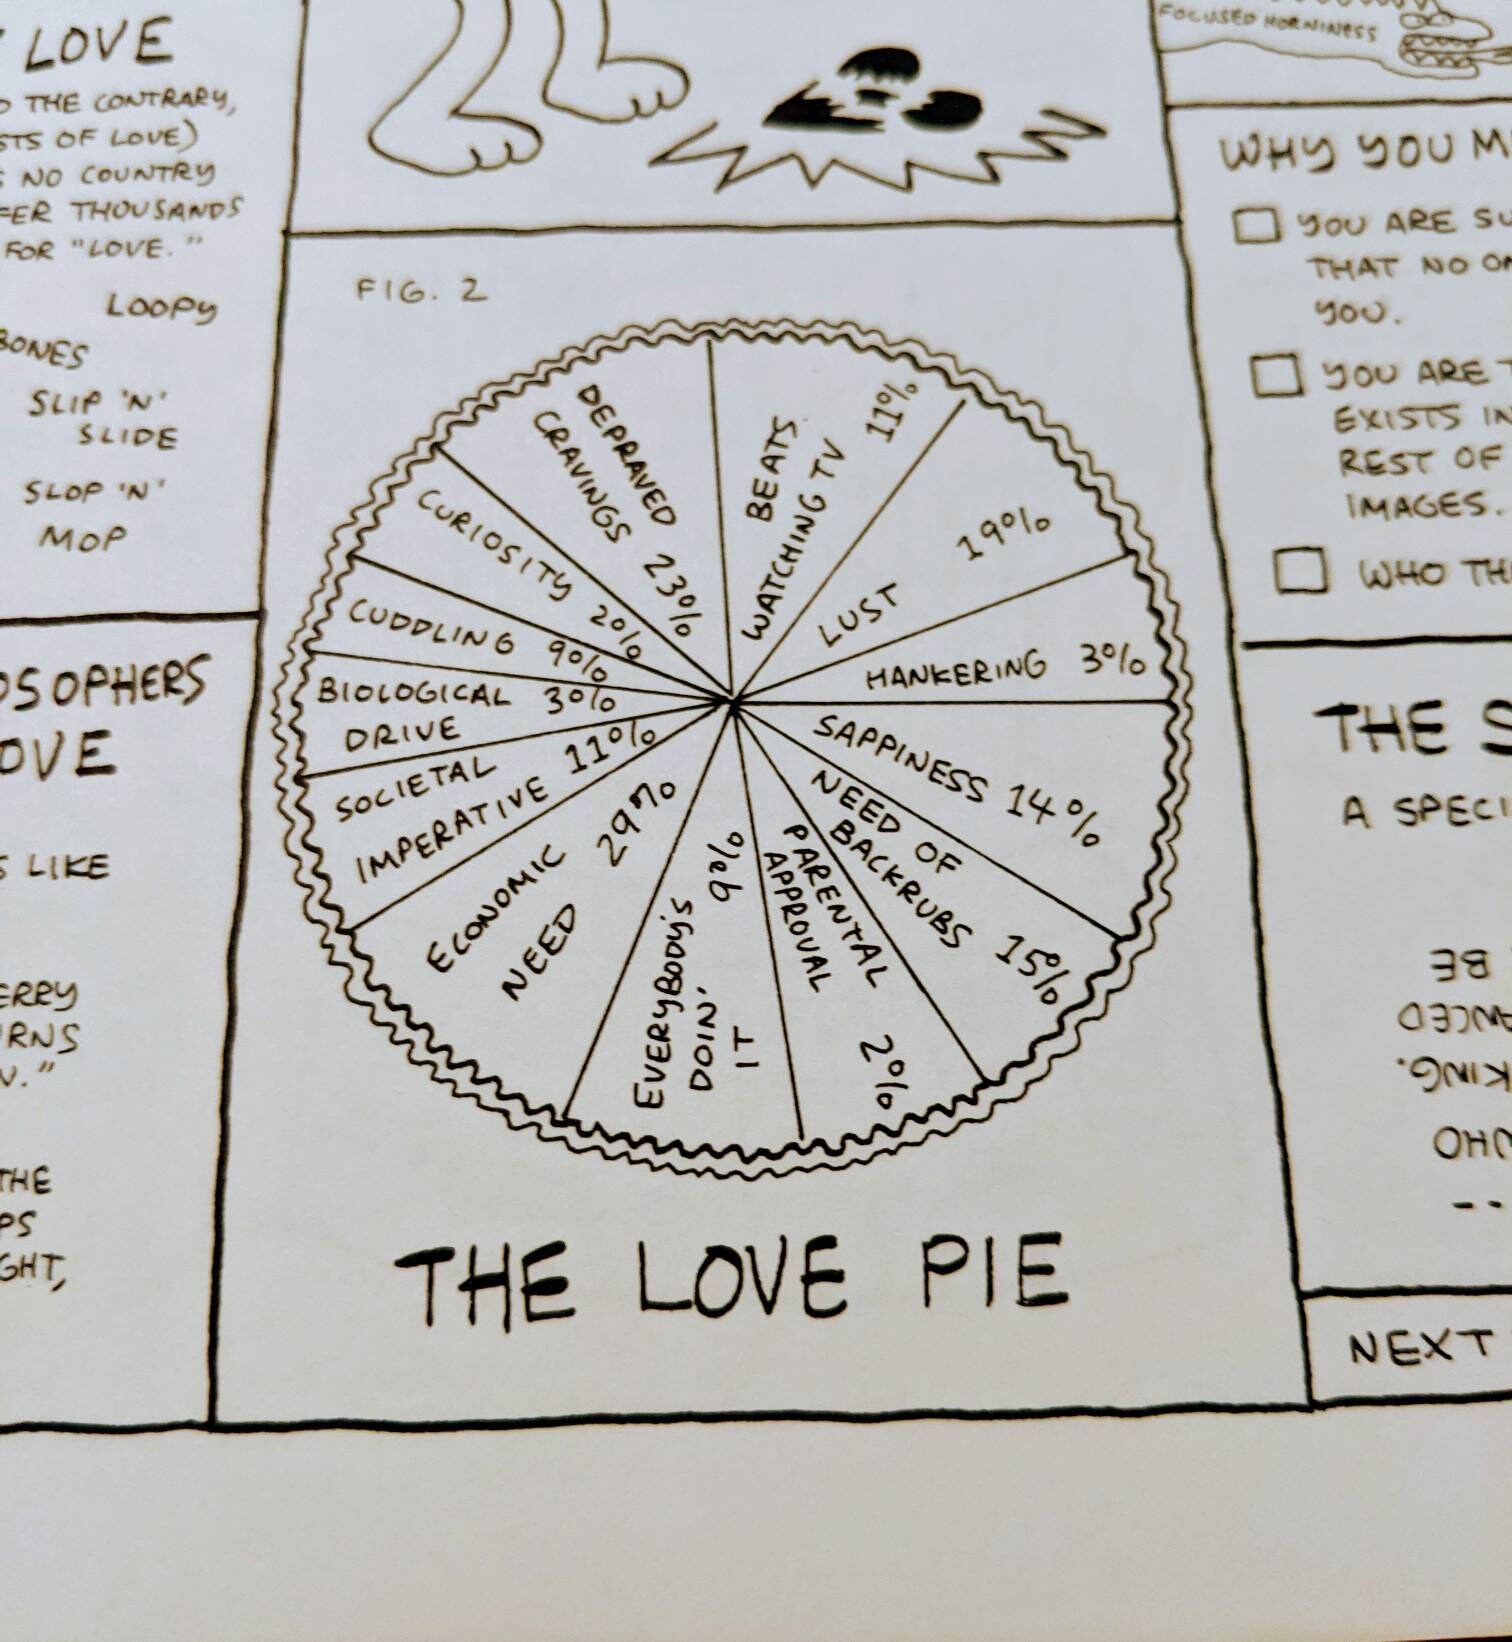 LOVE
THE CONTRARY,
OF LOVE)
NO COUNTRY
THOUSANDS
FOR "LOVE."
LOOPY
BONES
SLIP 'N'
SLIDE
SLOP 'N'
MOP
LIKE
THE
FIG. 2
BEATS
WATCHING TV 11%
LUST 19%
HANKERING 3%
SAPPINESS 14%
NEED OF
BACKRUBS 15%
PARENTAL
APPROVAL
2%
EVERYBODY'S 9%
DOIN'
IT
ECONOMIC
NEED 29%
SOCIETAL
IMPERATIVE 11%
BIOLOGICAL 3%
DRIVE
CUDDLING 9%
CURIOSITY 2%
DEPRAVED
CRAVINGS 23%
THE LOVE PIE
FOCUSED HORNINESS
WHY YOU
☐ YOU ARE
THAT NO
YOU.
☐ YOU ARE
EXISTS IN
REST OF
IMAGES.
☐ WHO
THE
A
BE
NEXT